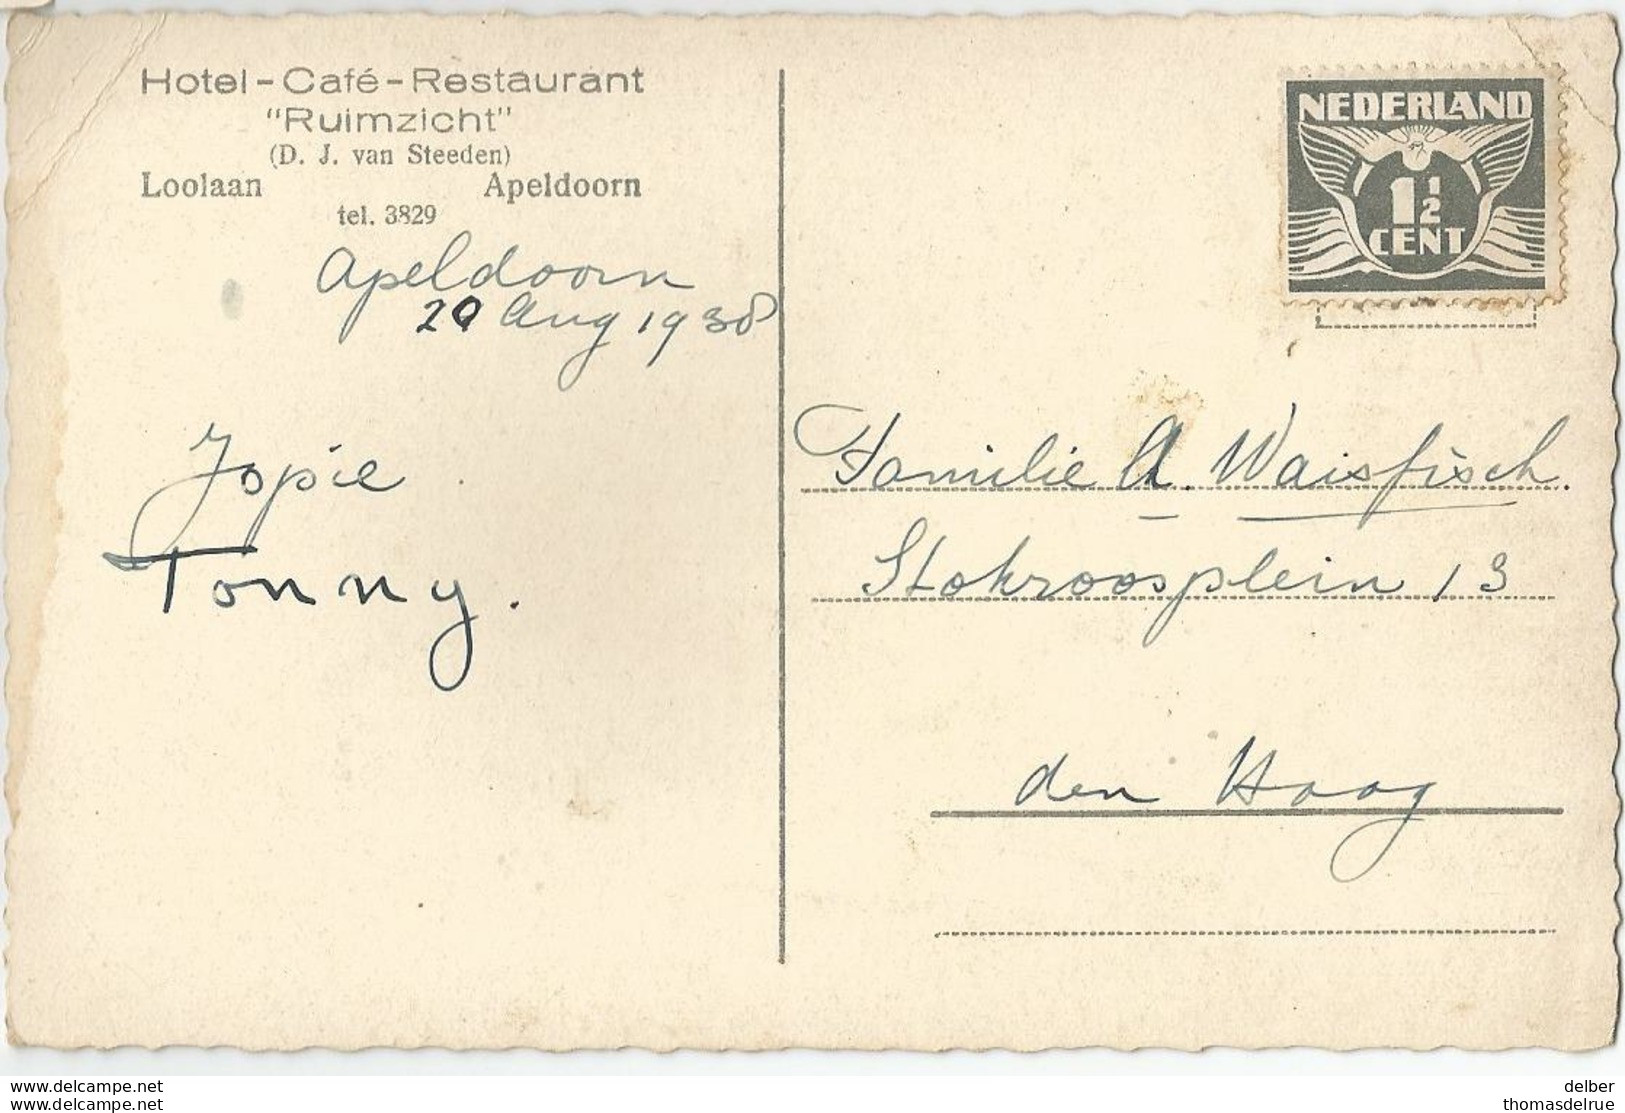 Hotel - Café - Restaurant
"Ruimzicht"
(D. J. van Steeden)
Loolaan Apeldoorn
tel. 3829
Apeldoorn
20 Aug 1938
Jopie
Tonny.
NEDERLAND
1½
CENT
Familie A. Waisfisch.
Stokroosplein 13
den Haag
www.delcampe.net
www.delcampe.net
delber
thomasdelrue